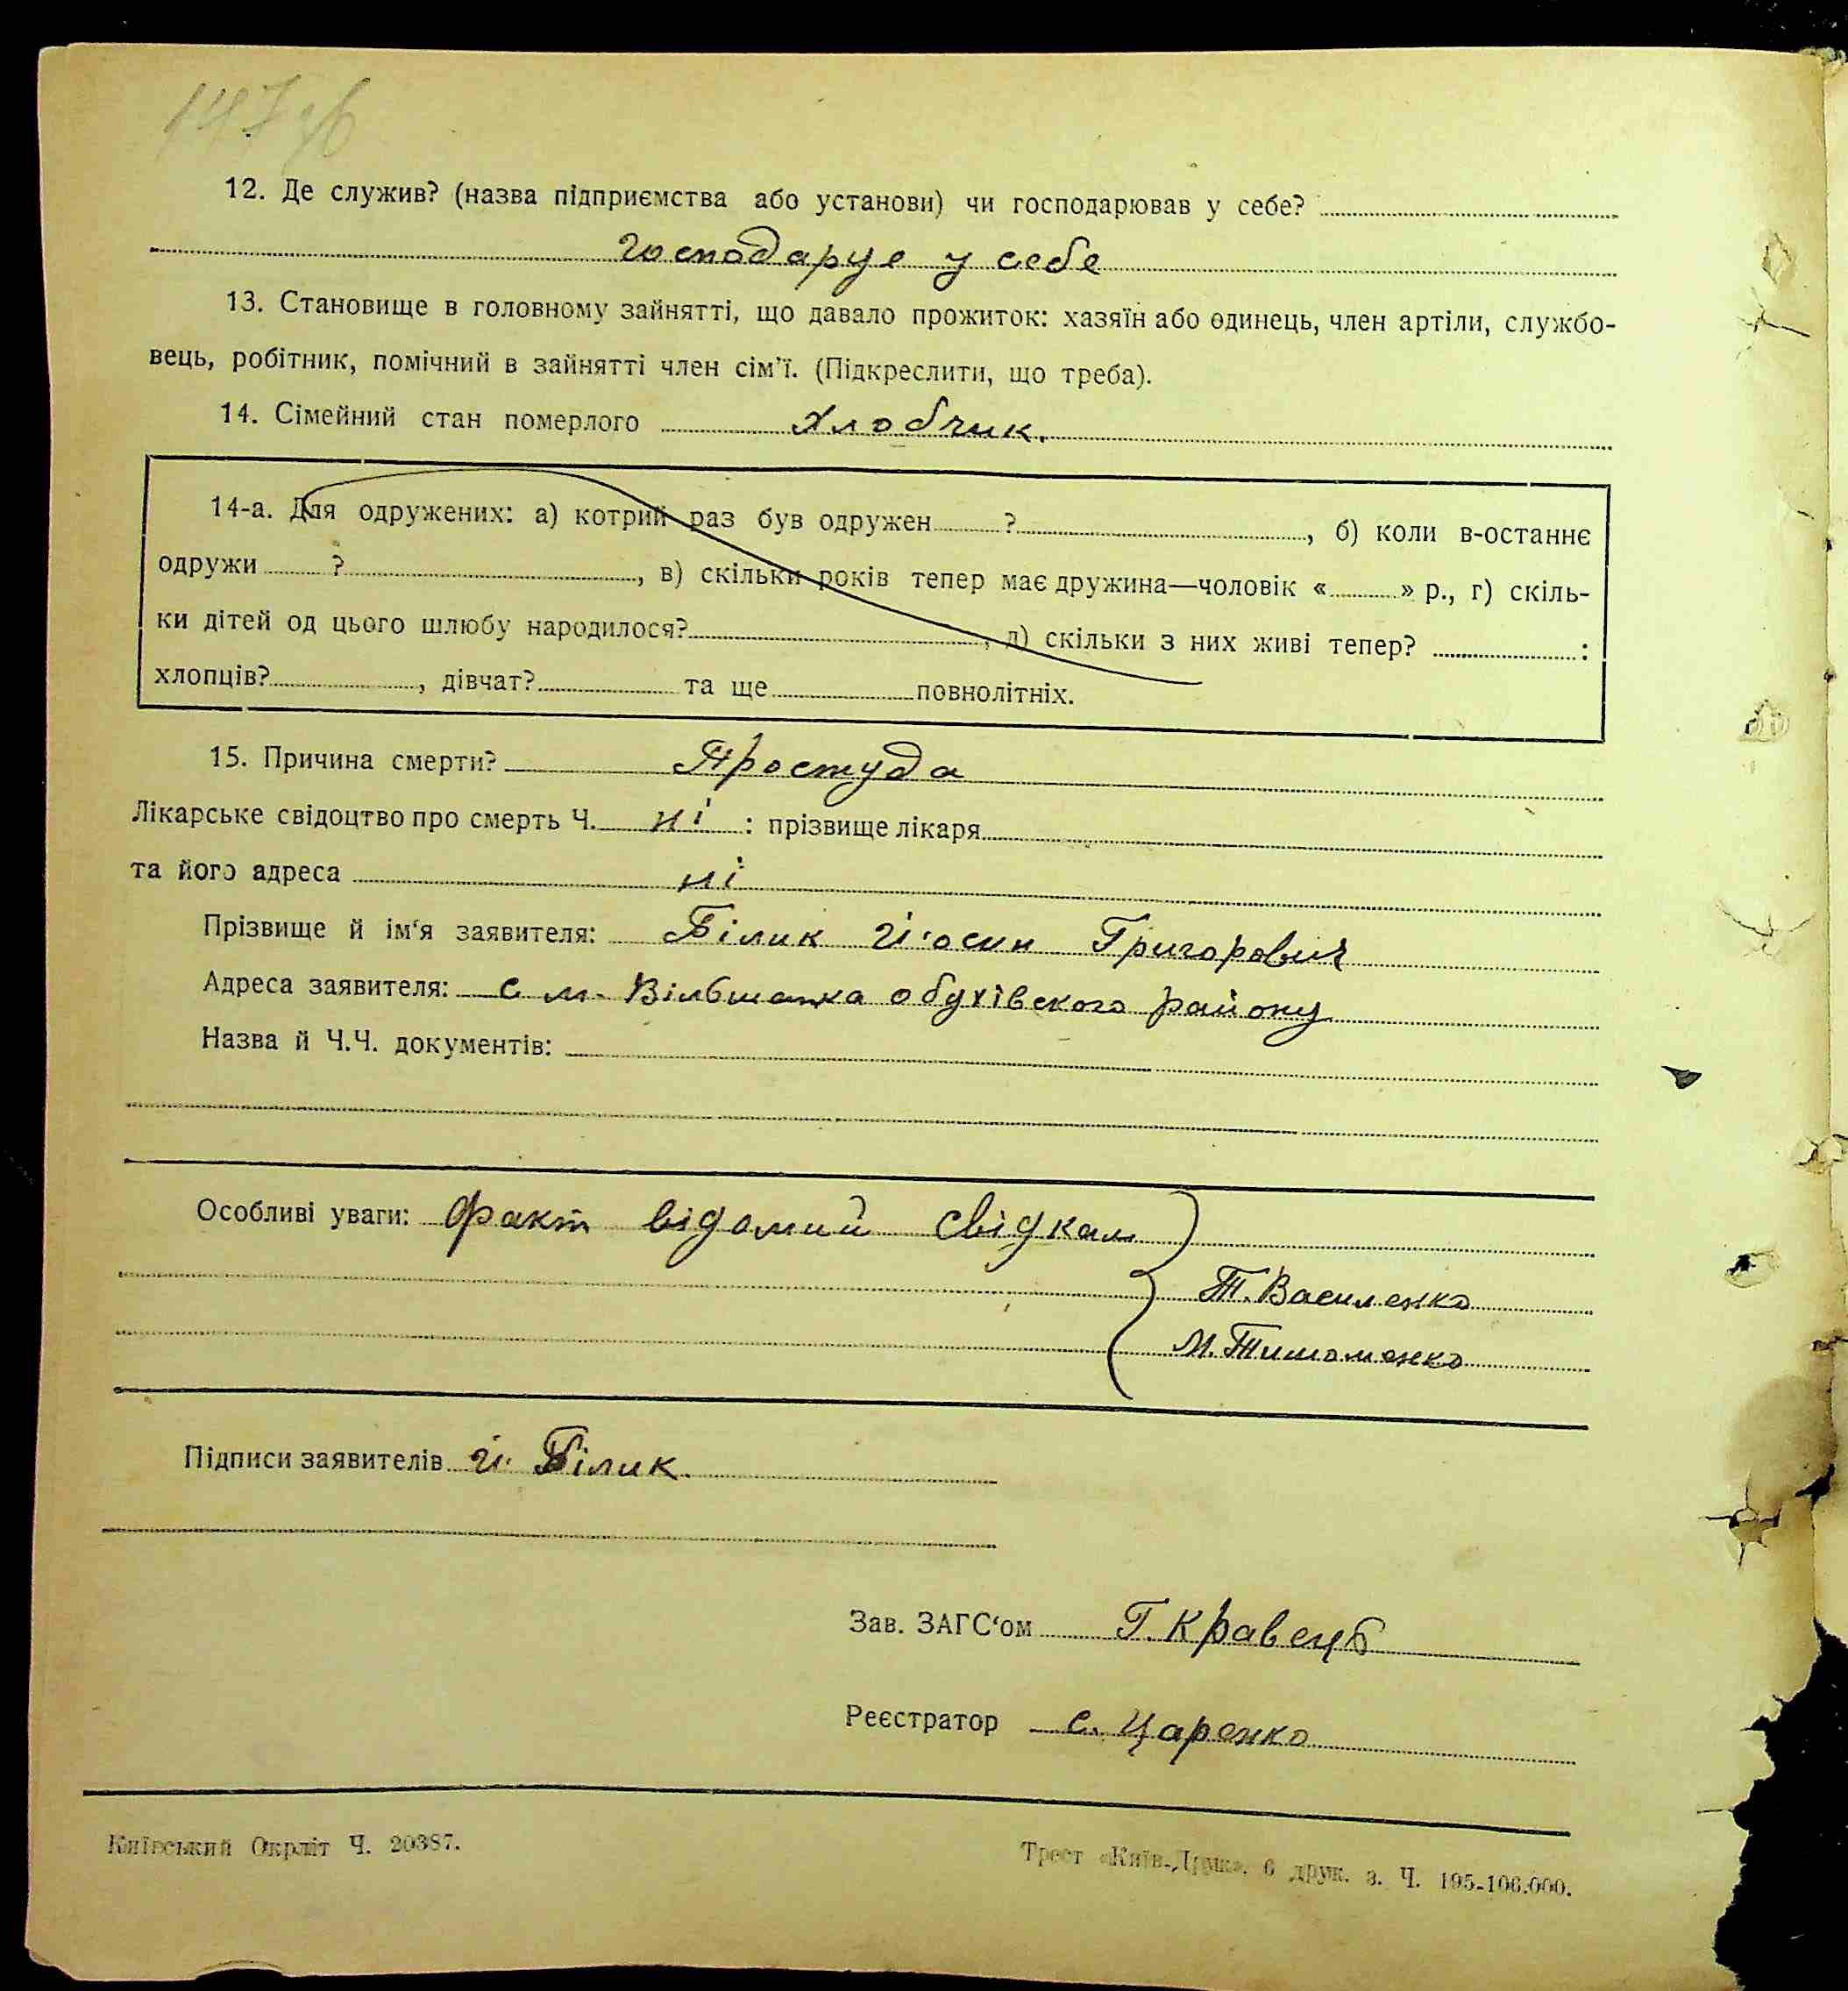 147 зв
12. Де служив? (назва підприємства або установи) чи господарював у себе?
господарує у себе
13. Становище в головному зайнятті, що давало прожиток: хазяїн або одинець, член артіли, службо-
вець, робітник, помічний в зайнятті член сім'ї. (Підкреслити, що треба).
14. Сімейний стан померлого хлобчик.
14-а. Для одружених: а) котрий раз був одружен ? , б) коли в-останнє
одружи ? , в) скільки років тепер має дружина—чоловік « » р., г) скіль-
ки дітей од цього шлюбу народилося? , д) скільки з них живі тепер? :
хлопців? , дівчат? та ще повнолітніх.
15. Причина смерти? Простуда
Лікарське свідоцтво про смерть Ч. ні : прізвище лікаря
та його адреса ні
Прізвище й ім'я заявителя: Білик Й'осип Григорович
Адреса заявителя: с м. Вільшанка обухівского району
Назва й Ч.Ч. документів:
Особливі уваги: Факт відомий свідкам
Т. Василенко
М. Тишоменко
Підписи заявителів Й. Білик.
Зав. ЗАГС'ом Г. Кравець
Реєстратор С. Царенко
Київський Окрліт Ч. 20387.
Трест «Київ-Друк». 6 друк. з. Ч. 195-106.000.